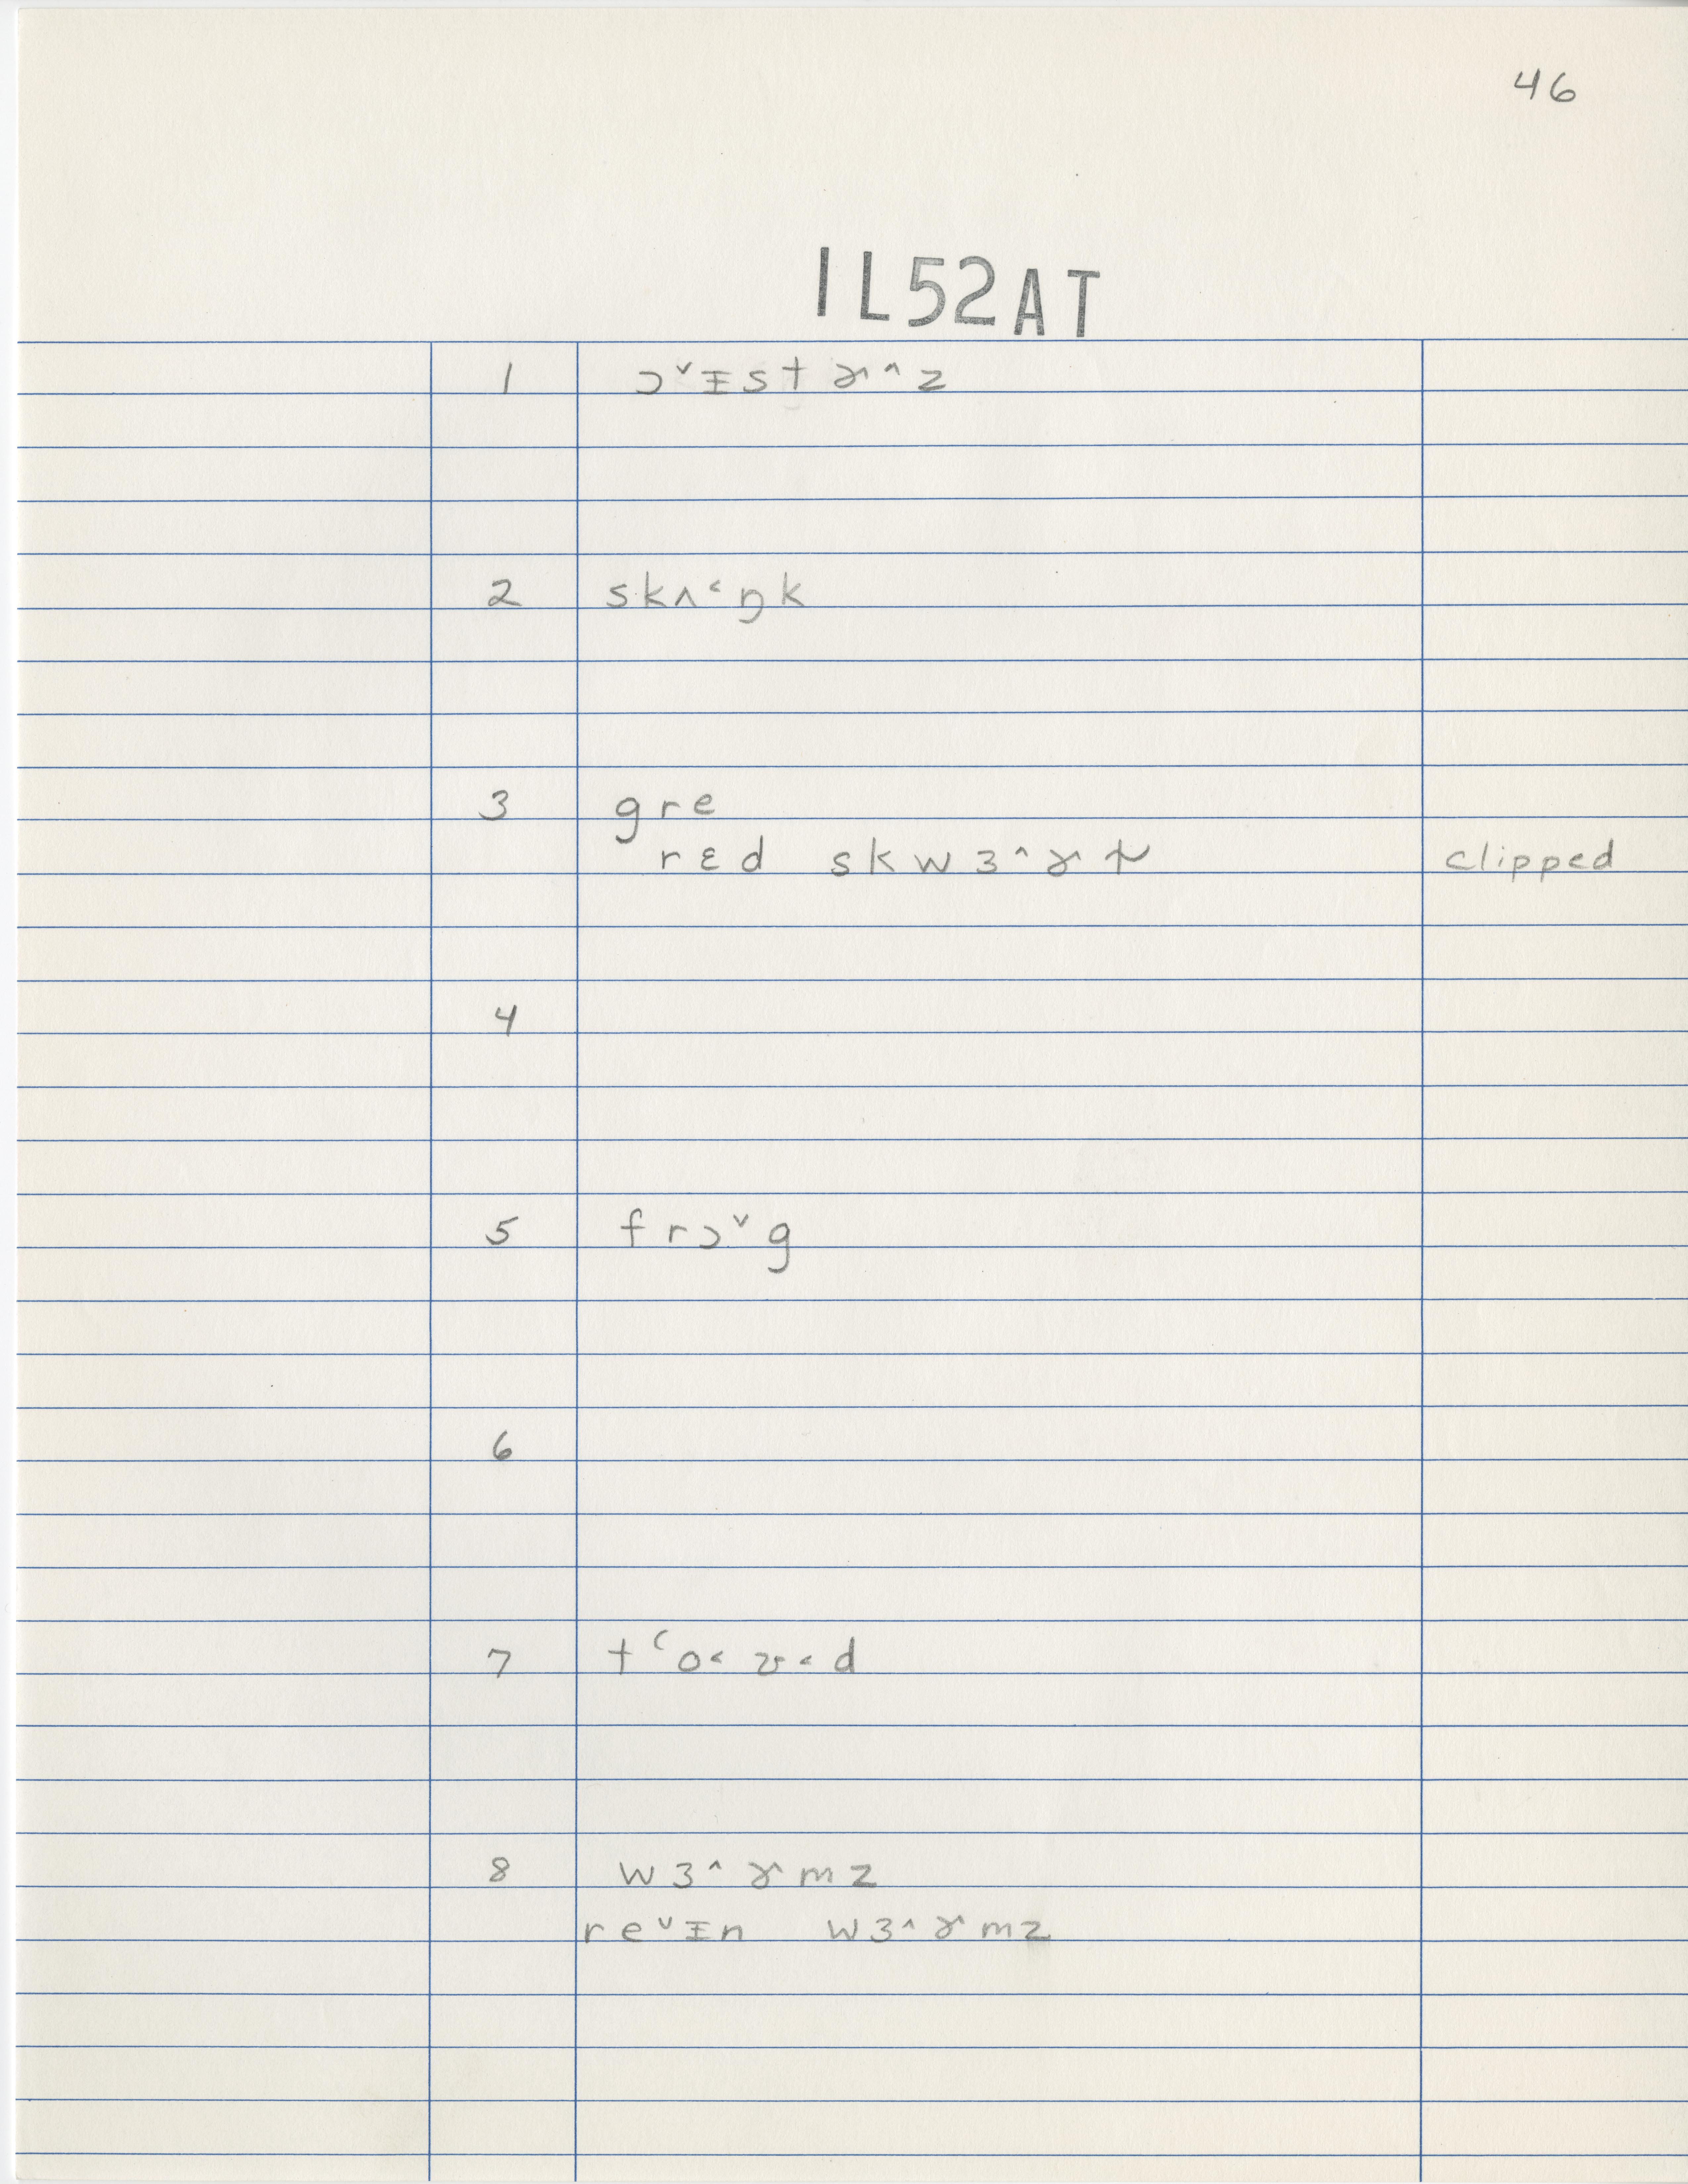 46
1L52AT
1 ɔ˅ɪstɚ^z
2 skʌ˂ŋk
3 gre
rɛd skwɜ^ɚt̴ clipped
4
5 frɔ˅g
6
7 tʻo˂ʊ˂d
8 wɜ^ɚmz
re˅ɪn wɜ^ɚmz